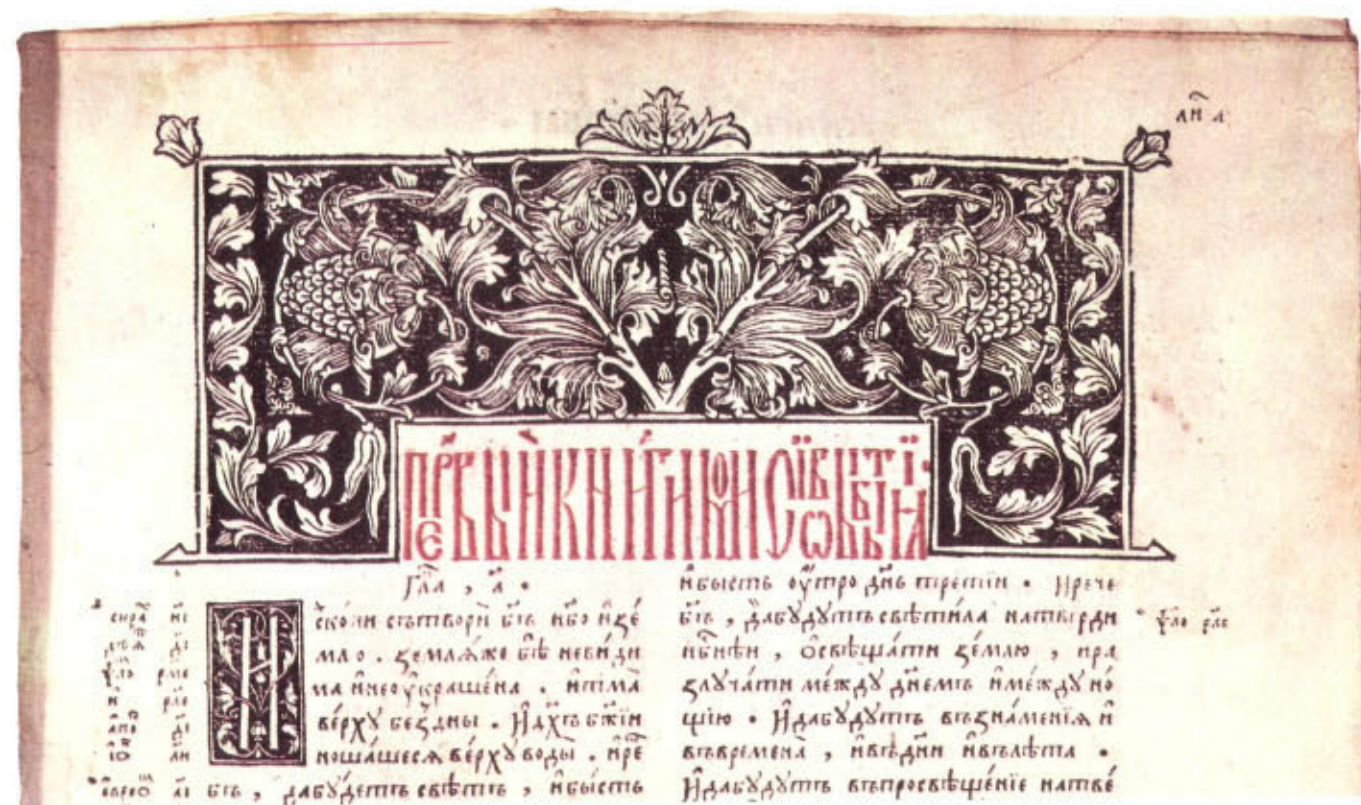 ли҃ а҃
Пе́рвыѧ кни́ги мои҆сі́ѡвы бытїѧ̀
Гла̀ , а҃ .
И҆скони сътворѝ бг҃ъ нб҃о и҆зе́
млю . землѧ́же бѣ̀ неви́ди
ма и҆неоу҆кра́шена . и҆тма̀
ве́рхꙋ бе́здны . И҆дх҃ъ бж҃їи
ноша́шесѧ ве́рхꙋ воды̀ . и҆ре
бг҃ъ , дабꙋ́детъ свѣ́тъ , и҆бы́сть
и҆бы́сть оу҆́тро дн҃ь тре́тїи . И҆рече
бг҃ъ , дабꙋ́дꙋтъ свѣти́ла натве́рди
нбⷭ҇нѣи , ѡ҆свѣща́ти зе́млю , ира
злꙋча́ти ме́ждꙋ дне́мъ и҆ме́ждꙋ но́
щїю . И҆дабꙋ́дꙋтъ възна́менїѧ и҆
въвремена̀ , и҆въднѝ и҆вълѣ́та .
И҆дабꙋ́дꙋтъ въпросвѣще́нїе натве́